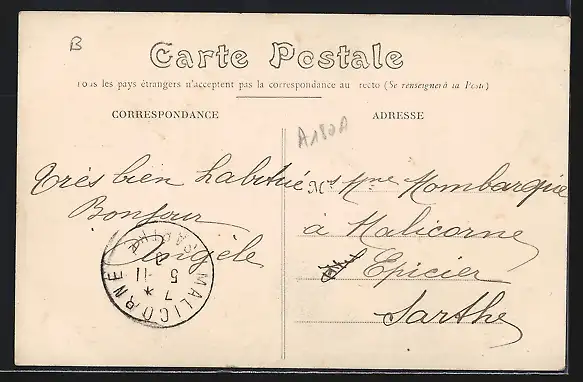 B
Carte Postale
Tous les pays étrangers n'acceptent pas la correspondance au recto (Se renseigner à la Poste)
CORRESPONDANCE
ADRESSE
A180A
Très bien habitué
Bonjour
Angèle
Mr Mme Mombarque
à Malicorne
Epicier
Sarthe
MALICORNE
SARTHE
7 *
5 11